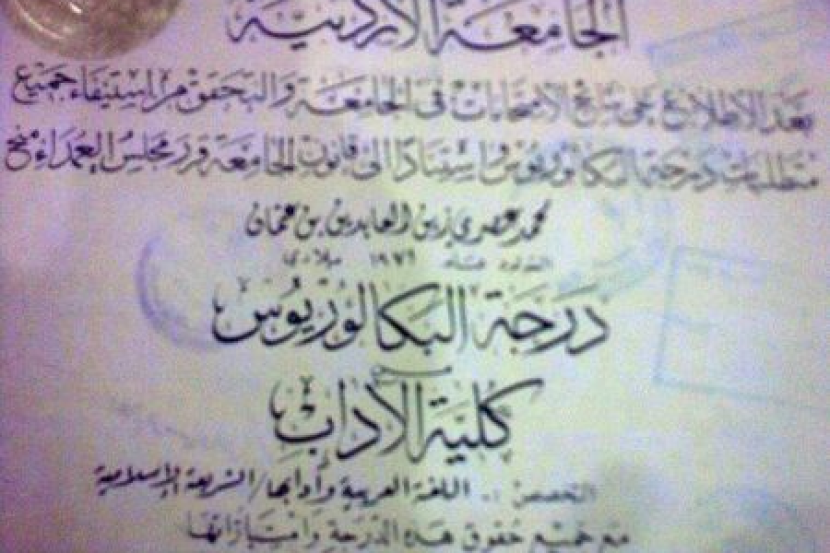 الجامعة الأردنية
بعد الاطلاع على نتائج الامتحانات في الجامعة والتحقق من استيفاء جميع
متطلبات درجة البكالوريوس واستنادا الى قانون الجامعة قرر مجلس العمداء منح
محمد عصري زين العابدين بن عثمان
المولود عام ١٩٧٦ ميلادي
درجة البكالوريوس
من
كلية الآداب
التخصص :- اللغة العربية وآدابها/الشريعة الإسلامية
مع جميع حقوق هذه الدرجة وامتيازاتها